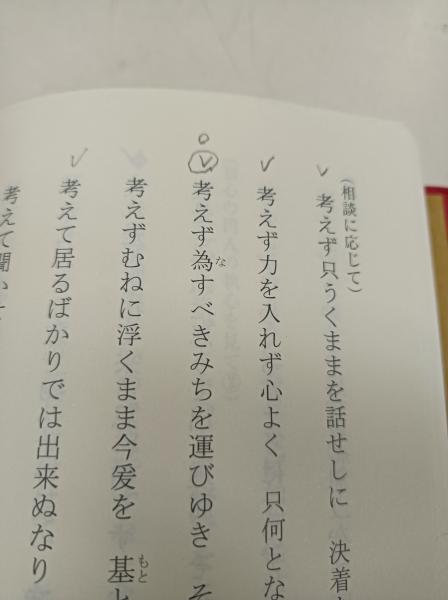 (相談に応じて)
考えず只うくままを話せしに 決着
考えず力を入れず心よく 只何とな
考えず為すべきみちを運びゆき そ
な
考えずむねに浮くまま今爰を 基と
もと
考えて居るばかりでは出来ぬなり
考えて聞い